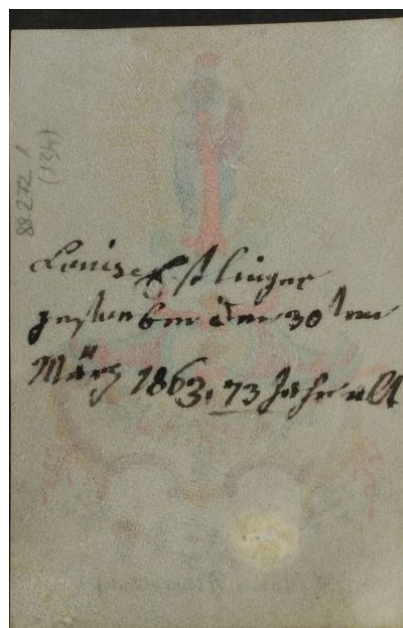 88.272/
(134)
Louise Estlinger
gestorben den 30ten
März 1863, 73 Jahr alt